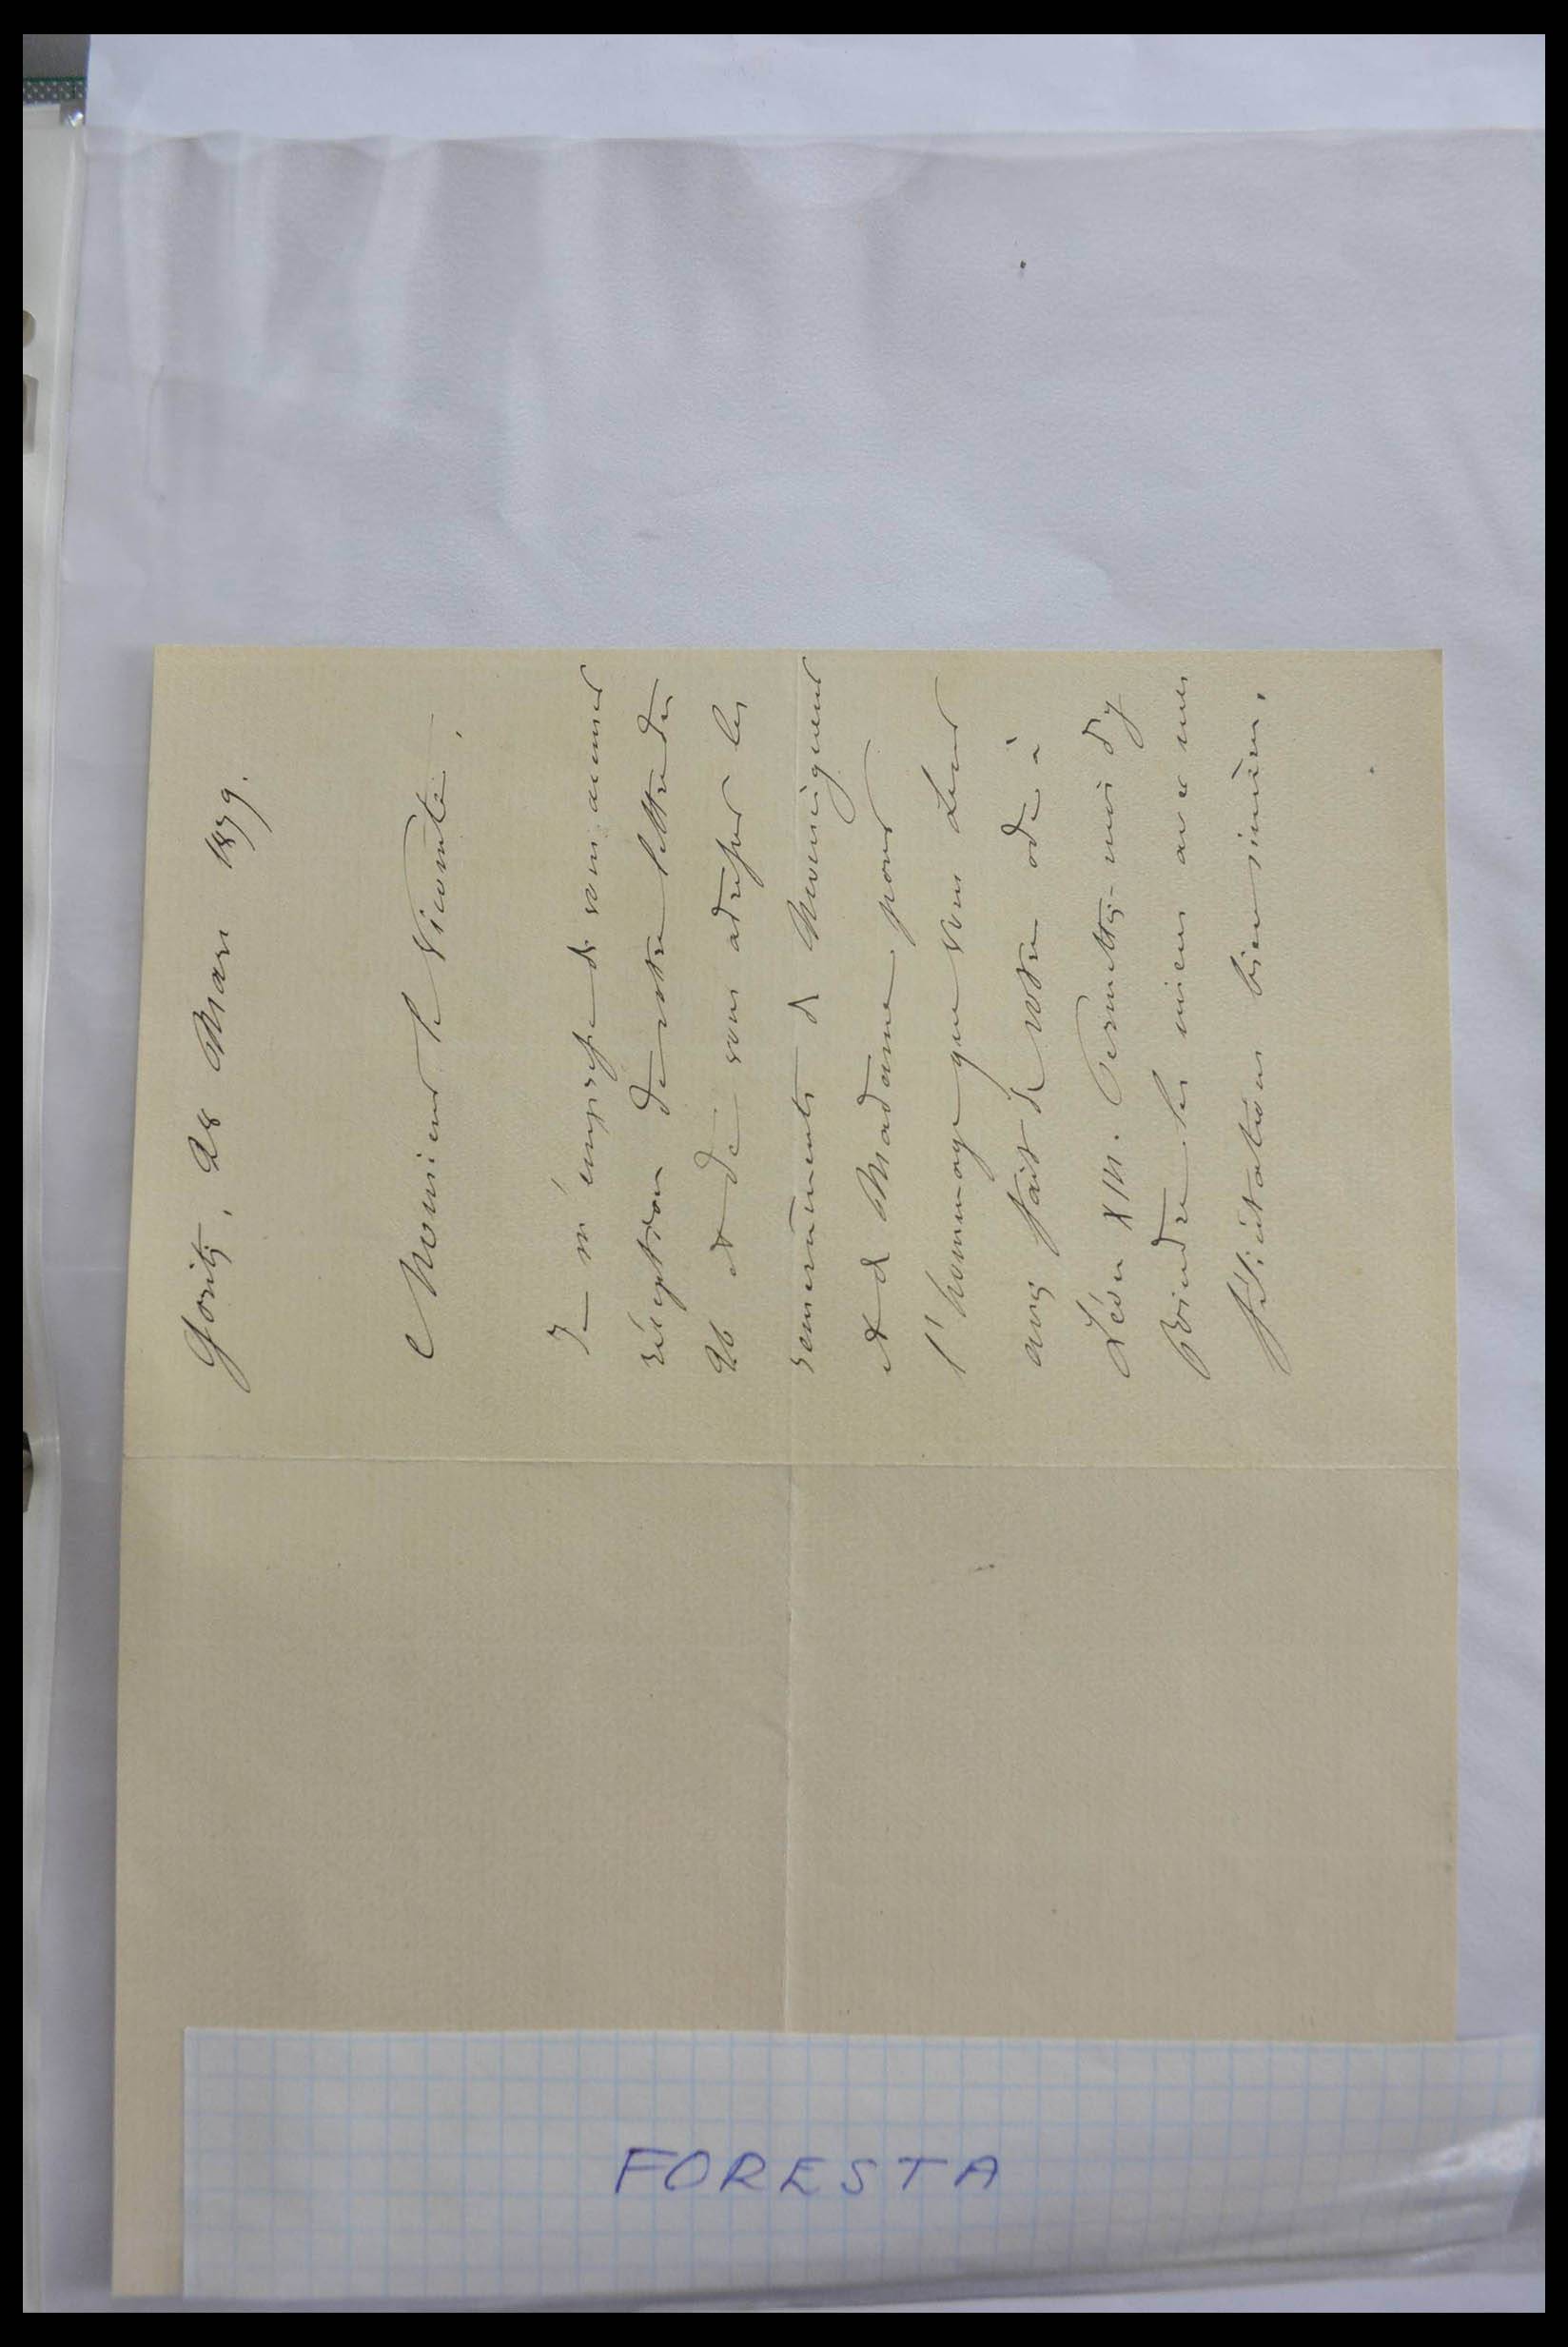 Goritz, 28 Mars 1879.
Monsieur le Vicomte,
Je m'empresse de vous accuser
réception de votre lettre du
26 et de vous adresser les
remerciments de Monseigneur
et de Madame pour
l'hommage que vous Leur
avez fait de votre ode à
Léon XIII. Permettez-moi d'y
joindre les miens avec mes
félicitations bien sincères.
FORESTA